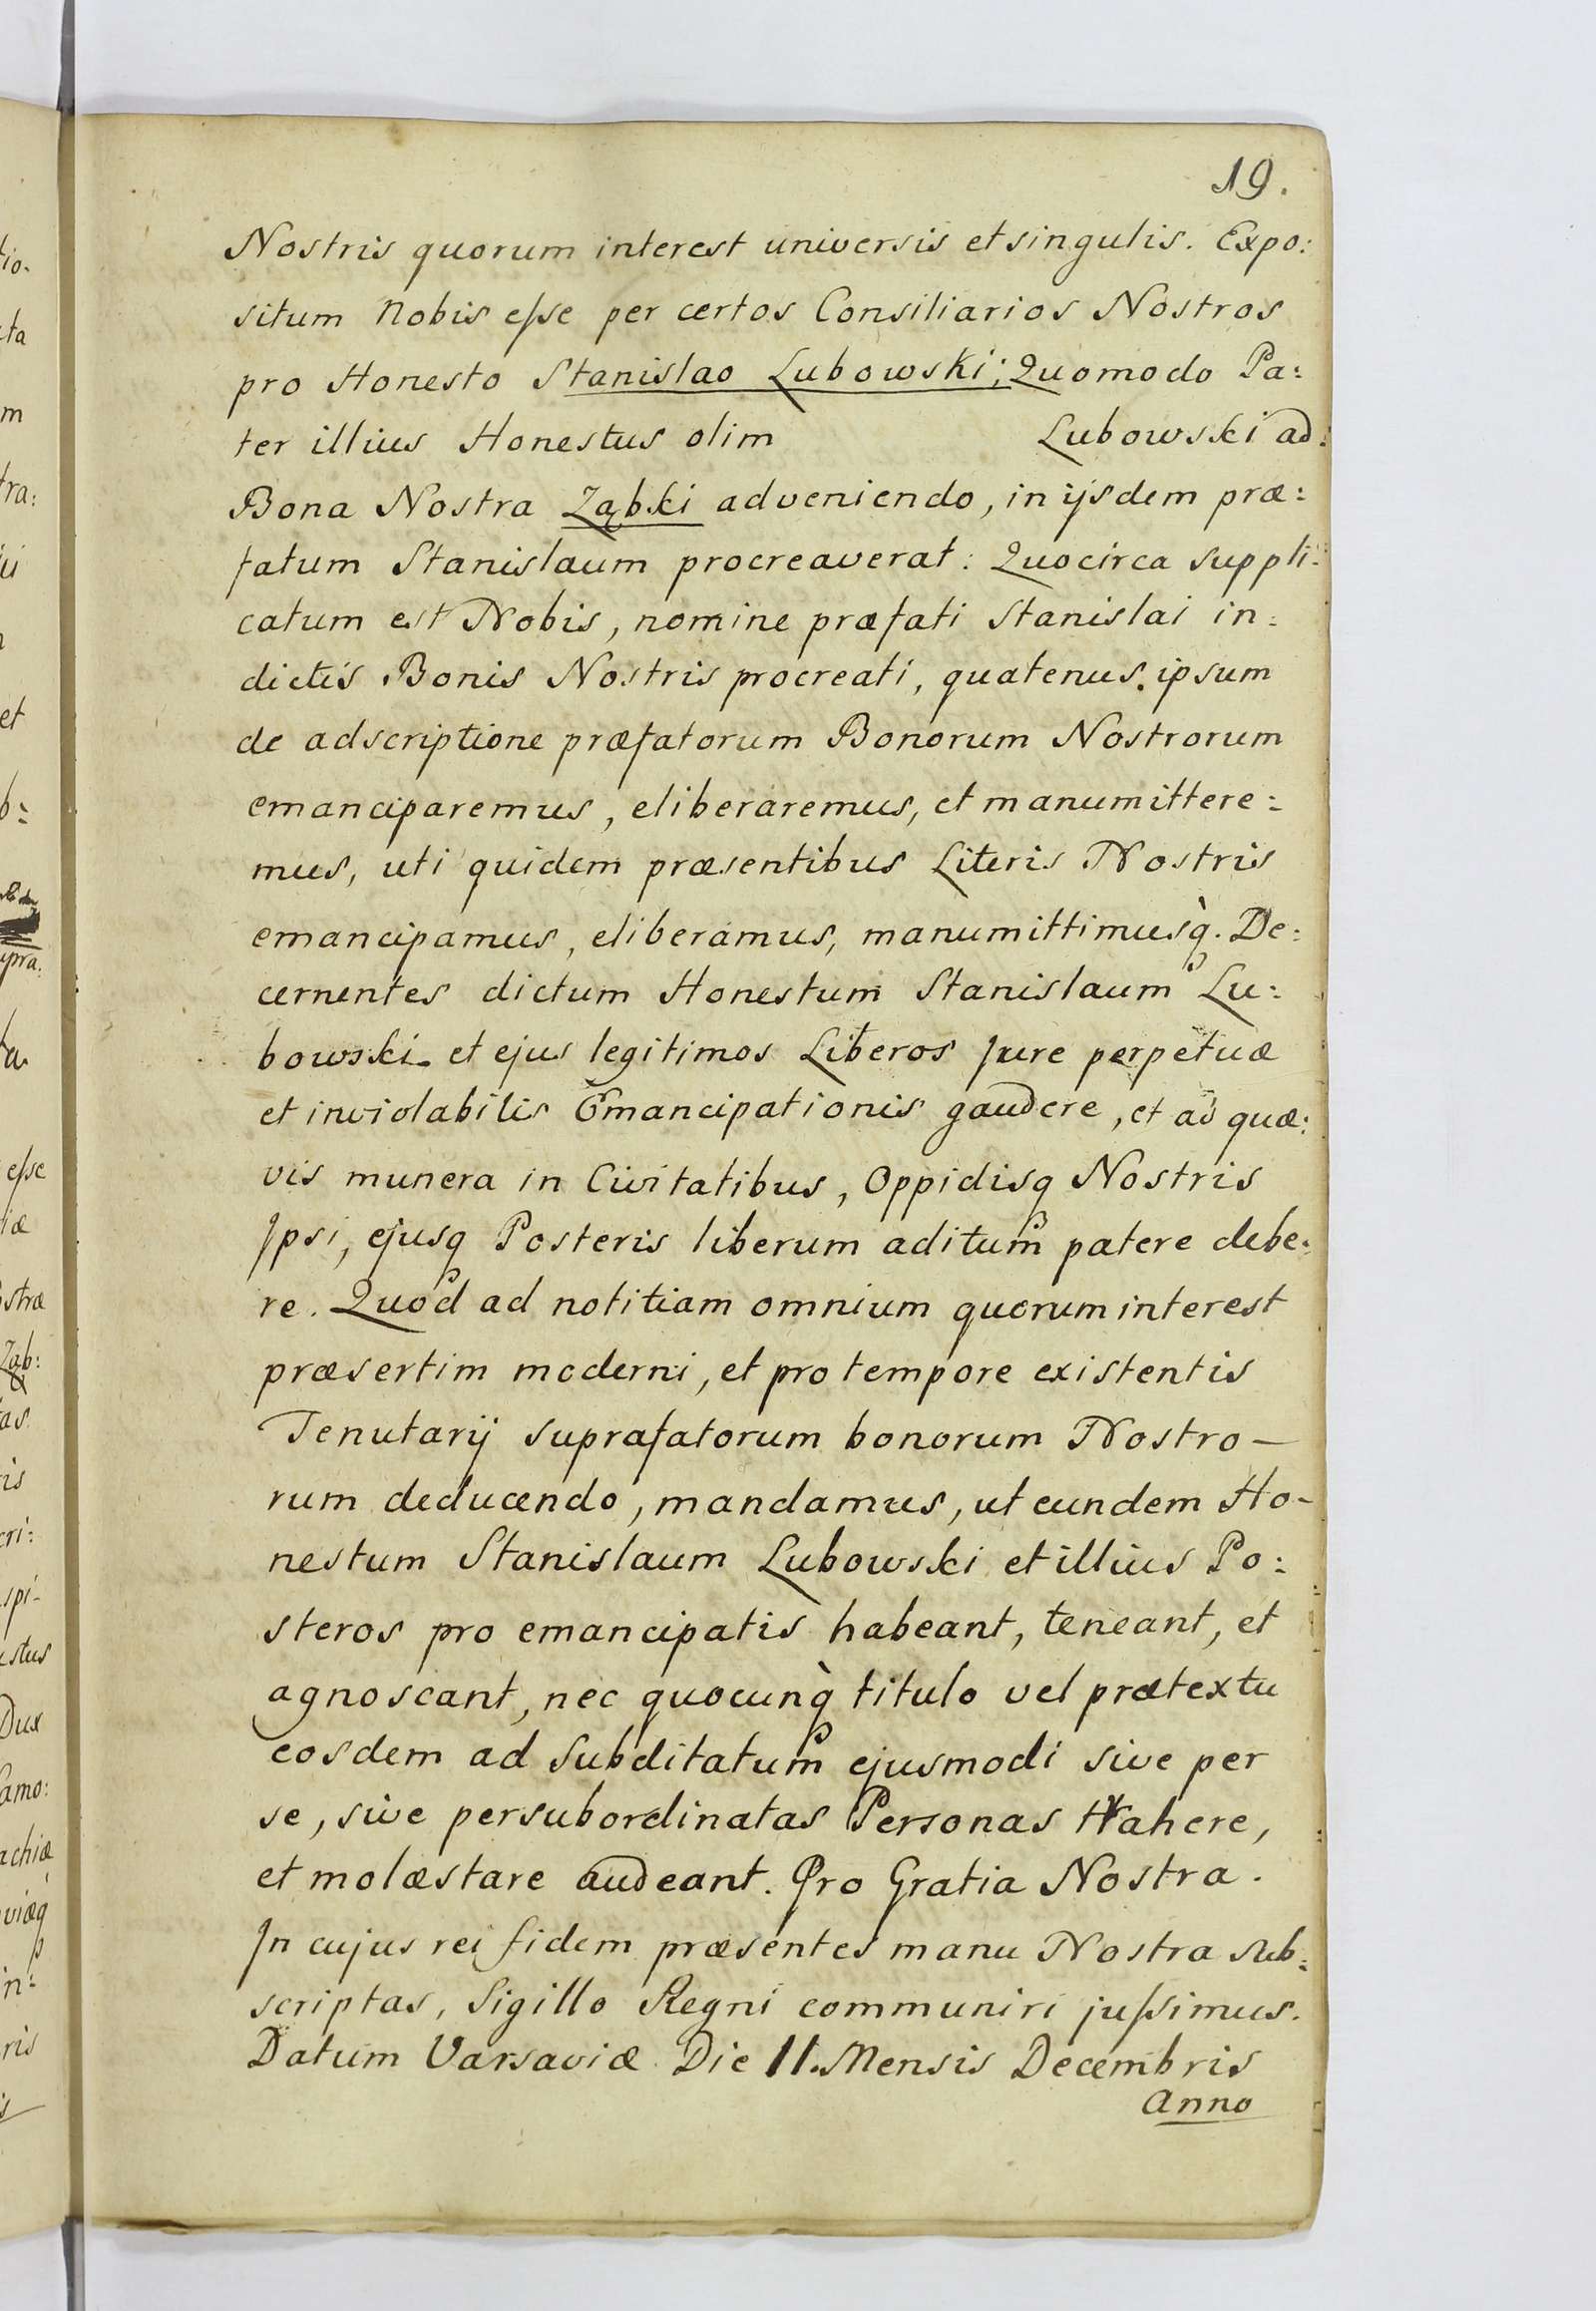 19.
Nostris quorum interest universis et singulis. Expo:
situm Nobis eſse per certos Consiliarios Nostros
pro Honesto Stanislao Lubowski; Quomodo Pa:
ter illius Honestus olim Lubowski ad:
Bona Nostra Ząbki adveniendo, in ijsdem præ:
fatum Stanislaum procreaverat: Quocirca suppli:
catum est Nobis, nomine præfati Stanislai in:
dictis Bonis Nostris procreati, quatenus ipsum
de adscriptione præfatorum Bonorum Nostrorum
emanciparemus, eliberaremus, et manumittere:
mus, uti quidem præsentibus Literis Nostris
emancipamus, eliberamus, manumittimusq̀. De:
cernentes dictum Honestum Stanislaum Lu:
bowski et ejus legitimos Liberos Jure perpetuæ
et inviolabilis Emancipationis gaudere, et ad quæ:
vis munera in Civitatibus, Oppidisq Nostris
Ipsi, ejusq Posteris liberum aditum patere debe:
re. Quod ad notitiam omnium quorum interest
præsertim moderni, et pro tempore existentis
Tenutarij suprafatorum bonorum Nostro-
rum deducendo, mandamus, ut eundem Ho-
nestum Stanislaum Lubowski et illius Po:
steros pro emancipatis habeant, teneant, et
agnoscant, nec quocunq̀ titulo vel prætextu
eosdem ad Subditatum ejusmodi sive per
se, sive persubordinatas Personas trahere,
et molæstare audeant. Pro Gratia Nostra.
In cujus rei fidem præsentes manu Nostra sub:
scriptas, Sigillo Regni communiri juſsimus.
Datum Varsaviæ Die 11. Mensis Decembris
Anno